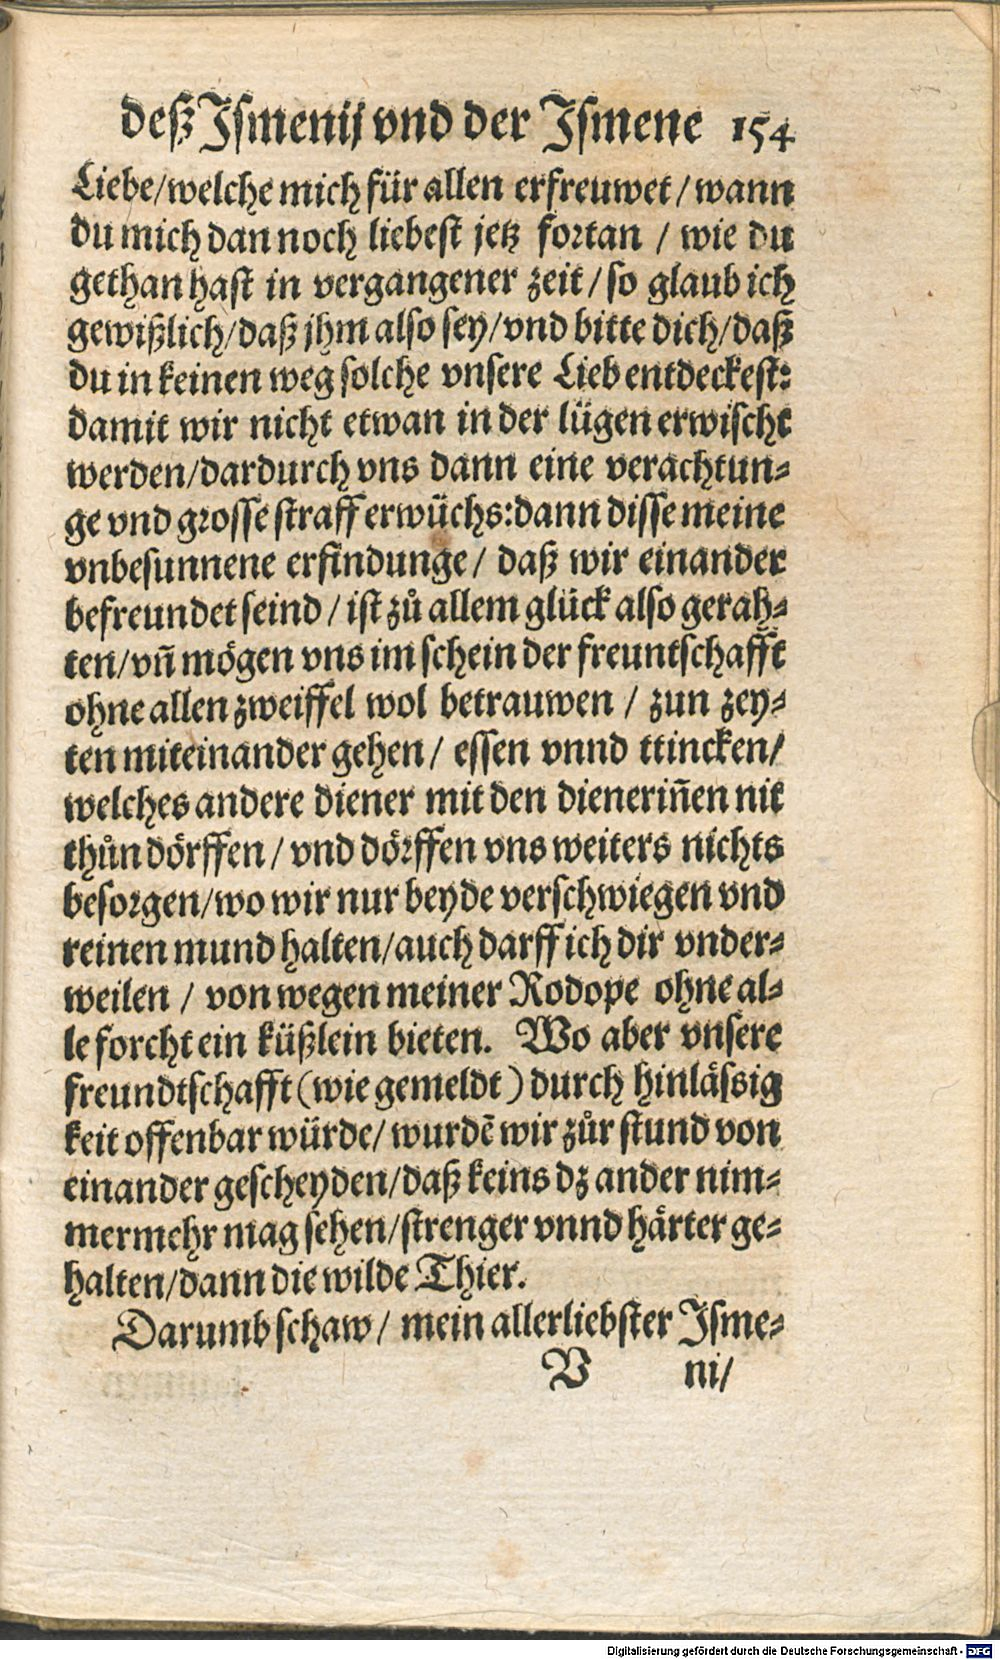 deß Ismenij vnd der Ismene 154
Liebe/welche mich für allen erfreuwet/wann
du mich dan noch liebest jetz fortan / wie du
gethan hast in vergangener zeit/so glaub ich
gewißlich/daß jhm also sey/vnd bitte dich/daß
du in keinen weg solche vnsere Lieb entdeckest:
damit wir nicht etwan in der lügen erwischt
werden/dardurch vns dann eine verachtun-
ge vnd grosse straff erwüchs:dann disse meine
vnbesunnene erfindunge/ daß wir einander
befreundet seind/ist zů allem glück also gerah-
ten/vñ mögen vns im schein der freuntschafft
ohne allen zweiffel wol betrauwen / zun zey-
ten miteinander gehen/ essen vnnd ttincken/
welches andere diener mit den dieneriñen nit
thůn dörffen/vnd dörffen vns weiters nichts
besorgen/wo wir nur beyde verschwiegen vnd
reinen mund halten/auch darff ich dir vnder-
weilen / von wegen meiner Rodope ohne al-
le forcht ein küßlein bieten. Wo aber vnsere
freundtschafft (wie gemeldt) durch hinlässig
keit offenbar würde/wurdē wir zůr stund von
einander gescheyden/daß keins dz ander nim-
mermehr mag sehen/strenger vnnd härter ge-
halten/dann die wilde Thier.
Darumb schaw/ mein allerliebster Isme-
V ni/
Digitalisierung gefördert durch die Deutsche Forschungsgemeinschaft - DFG